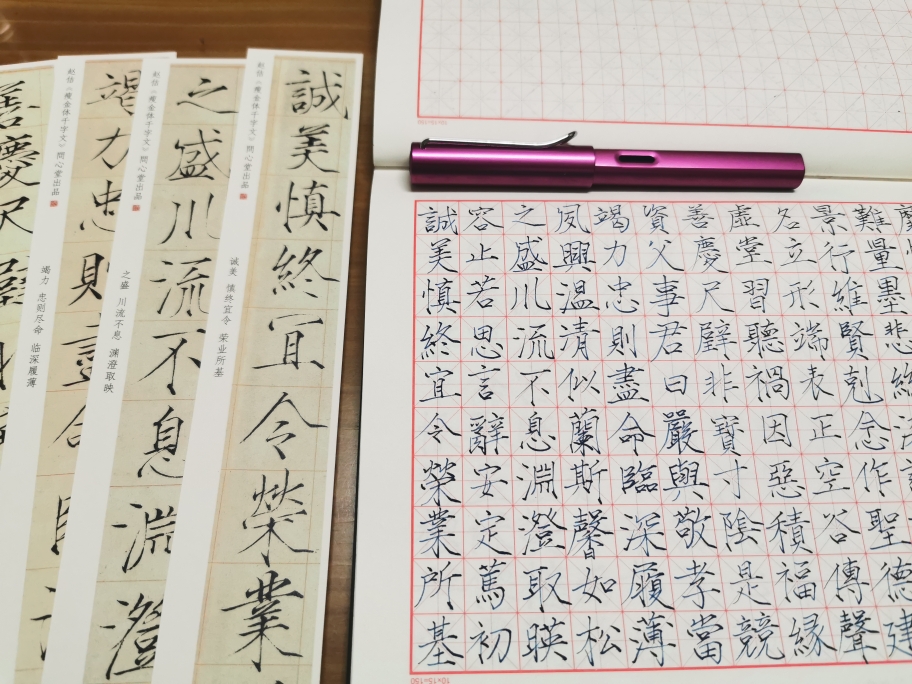 難量墨悲絲染詩
景行維賢剋念作聖德建
名立形端表正空谷傳聲
虛堂習聽禍因惡積福緣
善慶尺璧非寶寸陰是競
資父事君曰嚴與敬孝當
竭力忠則盡命臨深履薄
夙興温清似蘭斯馨如松
之盛川流不息淵澄取暎
容止若思言辭安定篤初
誠美慎終宜令榮業所基
10×15=150
誠美慎終宜令榮業
赵佶《瘦金体千字文》問心堂出品
诚美 慎终宜令 荣业所基
之盛川流不息淵澄
赵佶《瘦金体千字文》問心堂出品
之盛 川流不息 渊澄取映
竭力忠則盡命
赵佶《瘦金体千字文》問心堂出品
竭力 忠则尽命 临深履薄
善慶尺璧